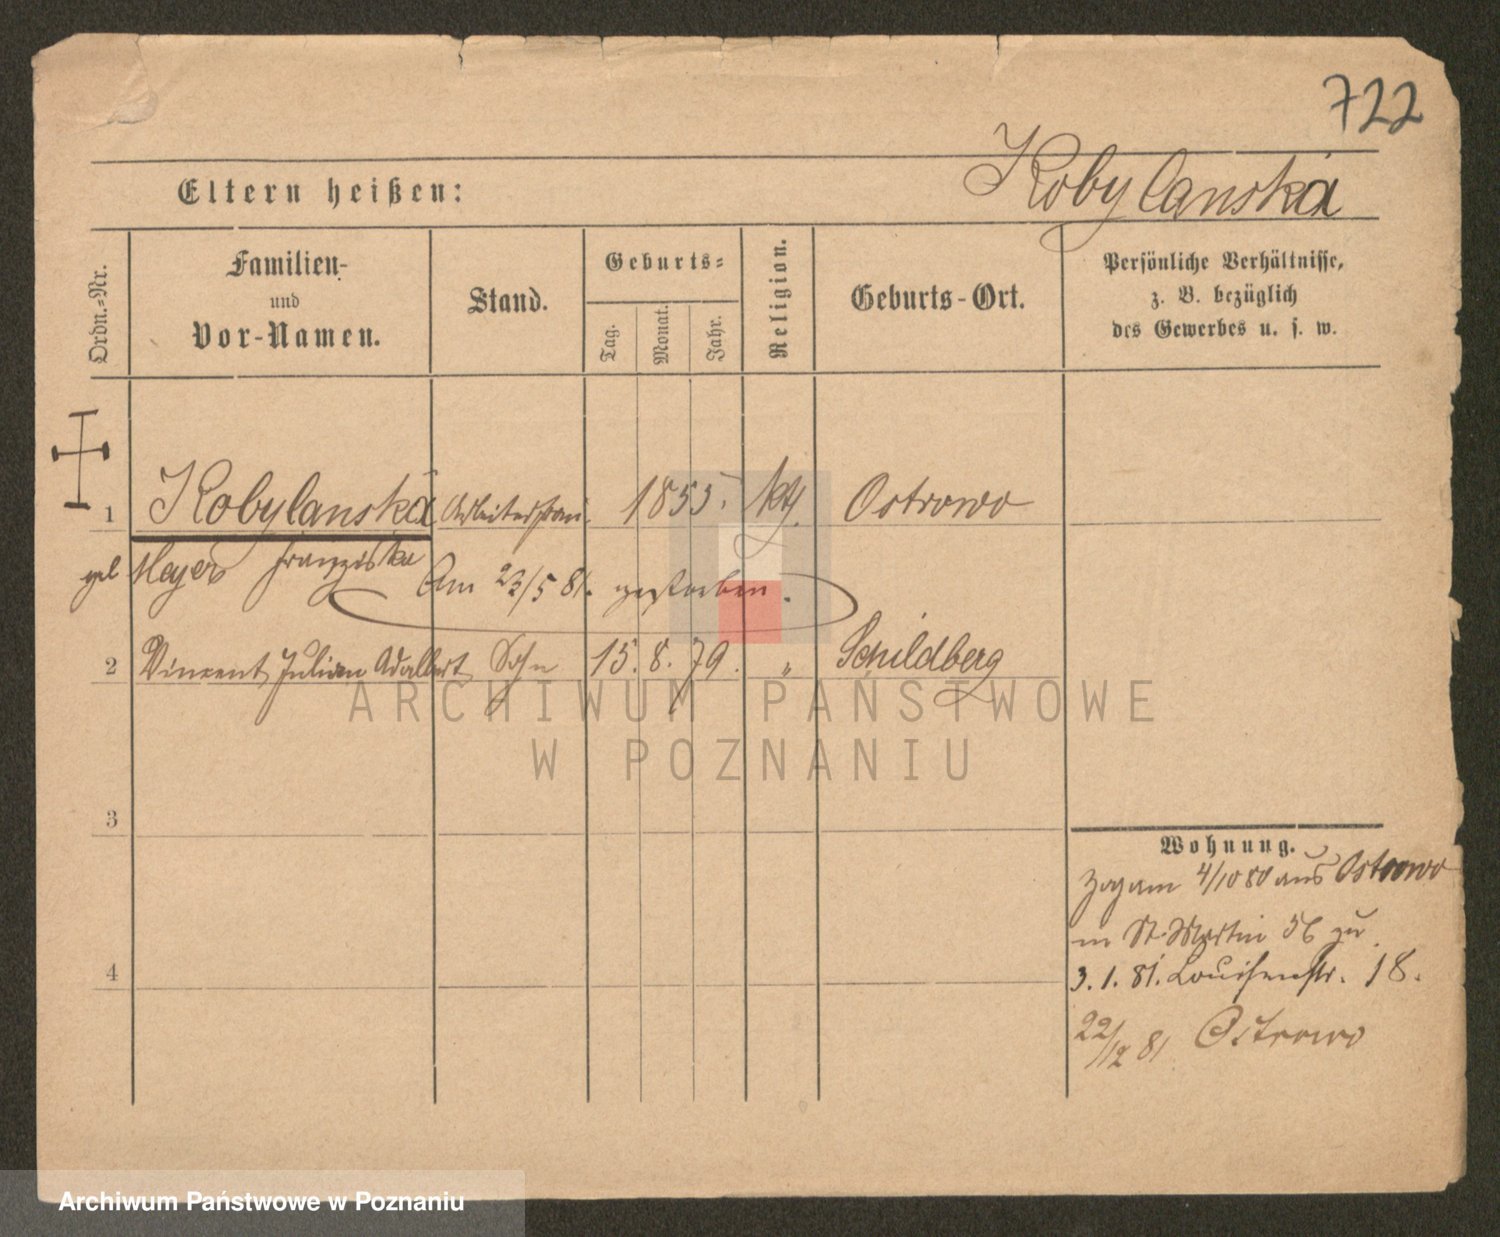 722
Kobylanska
Eltern heißen:
Ordn.=Nr.
Familien-
und
Vor-Namen.
Stand.
Geburts=
Tag.
Monat.
Jahr.
Religion.
Geburts-Ort.
Persönliche Verhältnisse,
z. B. bezüglich
des Gewerbes u. s. w.
1 Kobylanska Arbeiterfrau 1855. kth. Ostrowo
geb Meyer Franziska
Am 23/5 81. gestorben.
2 Vincent Julian Adalbert Sohn 15. 8. 79. " Schildberg
ARCHIWUM PAŃSTWOWE
W POZNANIU
3
Wohnung.
Zog am 4/10 80 aus Ostrowo
in St. Martin 56 zu
4
3. 1. 81. Louisenstr. 18.
22/12 81 Ostrowo
Archiwum Państwowe w Poznaniu